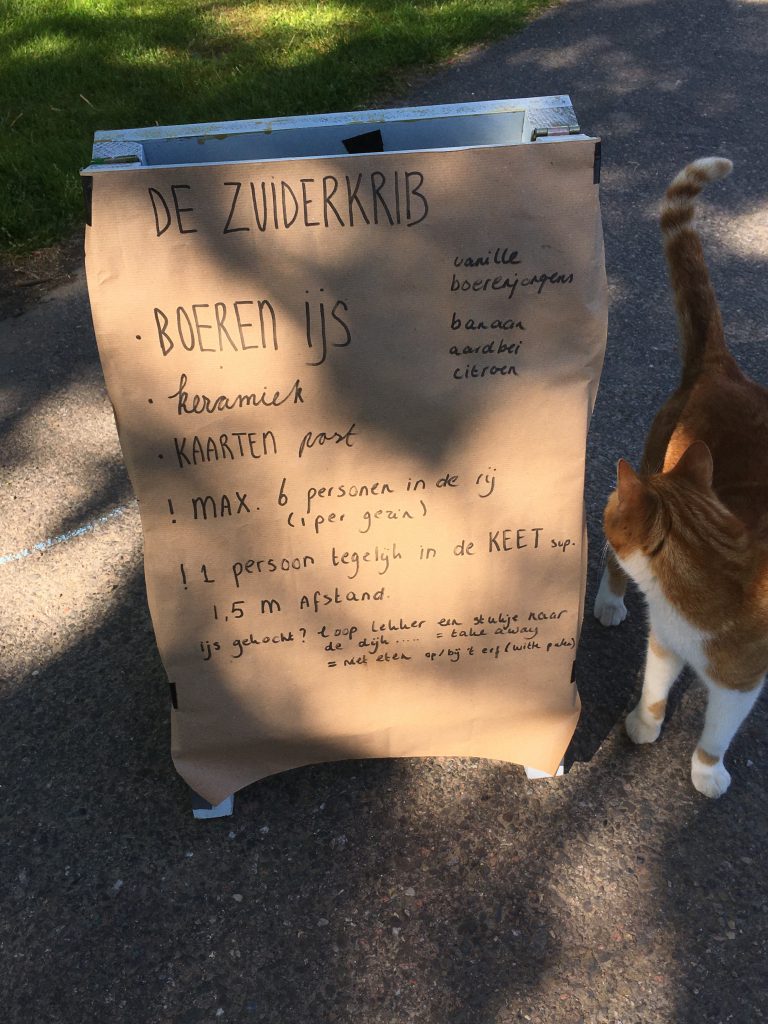 DE ZUIDERKRIB
vanille
boerenjongens
banaan
aardbei
citroen
• BOEREN ijs
• keramiek
• KAARTEN post
! MAX. 6 personen in de rij
(1 per gezin)
! 1 persoon tegelijk in de KEET svp.
1,5 m Afstand.
ijs gekocht? loop lekker een stukje naar
de dijk .... = take away
= niet eten op/bij 't erf (witte palen)